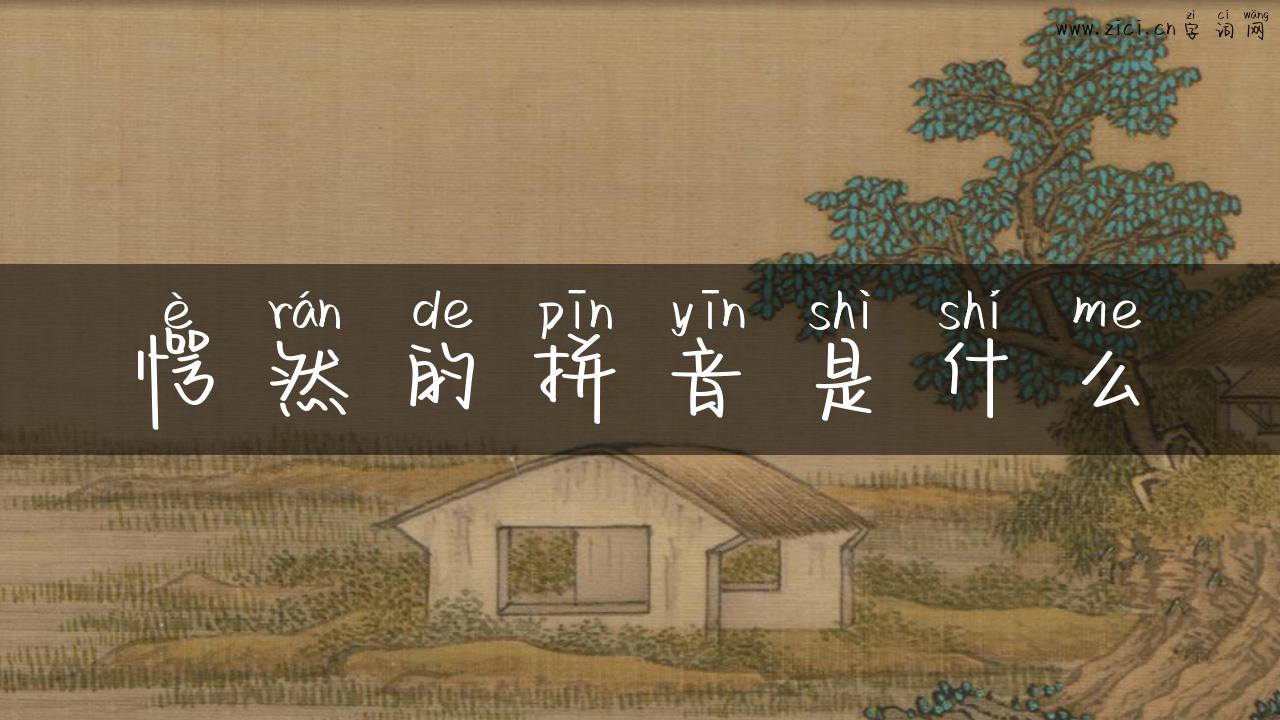 zì cí wǎng
www.zici.cn 字词网
è rán de pīn yīn shì shí me
愕然的拼音是什么